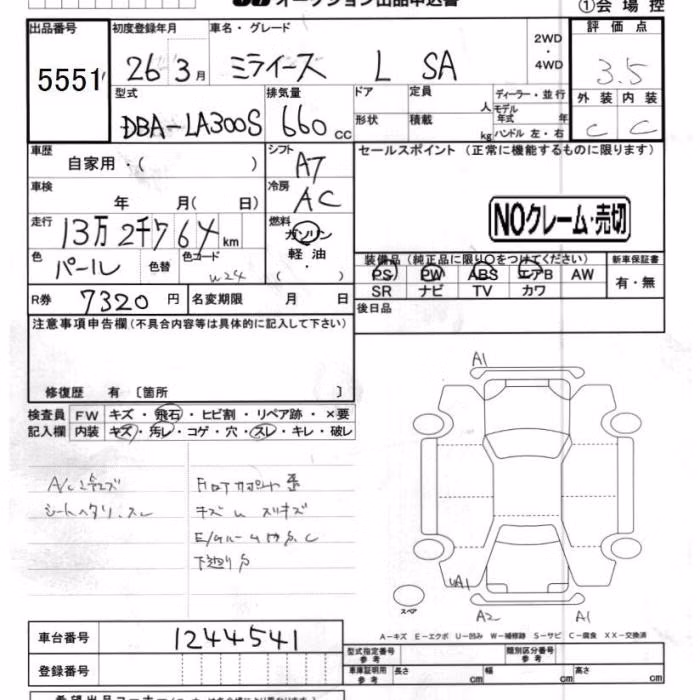 オークション出品申込書
①会場控
出品番号 初度登録年月 車名・グレード 2WD ・ 4WD 評価点
5551 26 3月 ミライース L SA 3.5
型式 排気量 ドア 定員 人 ディーラー・並行 外装 内装
DBA-LA300S 660 cc 形状 積載 kg モデル年式 年 ハンドル 左・右 C C
車歴 自家用・( ) シフト AT セールスポイント (正常に機能するものに限ります)
車検 年 月( 日) 冷房 AC
NOクレーム・売切
走行 13万2千764km 燃料 ガソリン 軽油 ・ ( )
色 パール 色替 色コード W24
装備品(純正品に限り○をつけてください) 新車保証書
PS PW ABS エアB AW 有・無
SR ナビ TV カワ
R券 7320円 名変期限 月 日 後日品
注意事項申告欄(不具合内容等は具体的に記入して下さい)
修復歴 有 〔箇所 〕
検査員 FW キズ・飛石・ヒビ割・リペア跡・×要
記入欄 内装 キズ・汚レ・コゲ・穴・スレ・キレ・破レ
A1
シートヘタリ.スレ
キズ
下廻り
UA1
A2
A1
スペア
A-キズ E-エクボ U-凹み W-補修跡 S-サビ C-腐食 XX-交換済
車台番号 1244541
登録番号
型式指定番号 参考 類別区分番号 参考
車庫証明用 参考 長さ cm 幅 cm 高さ cm